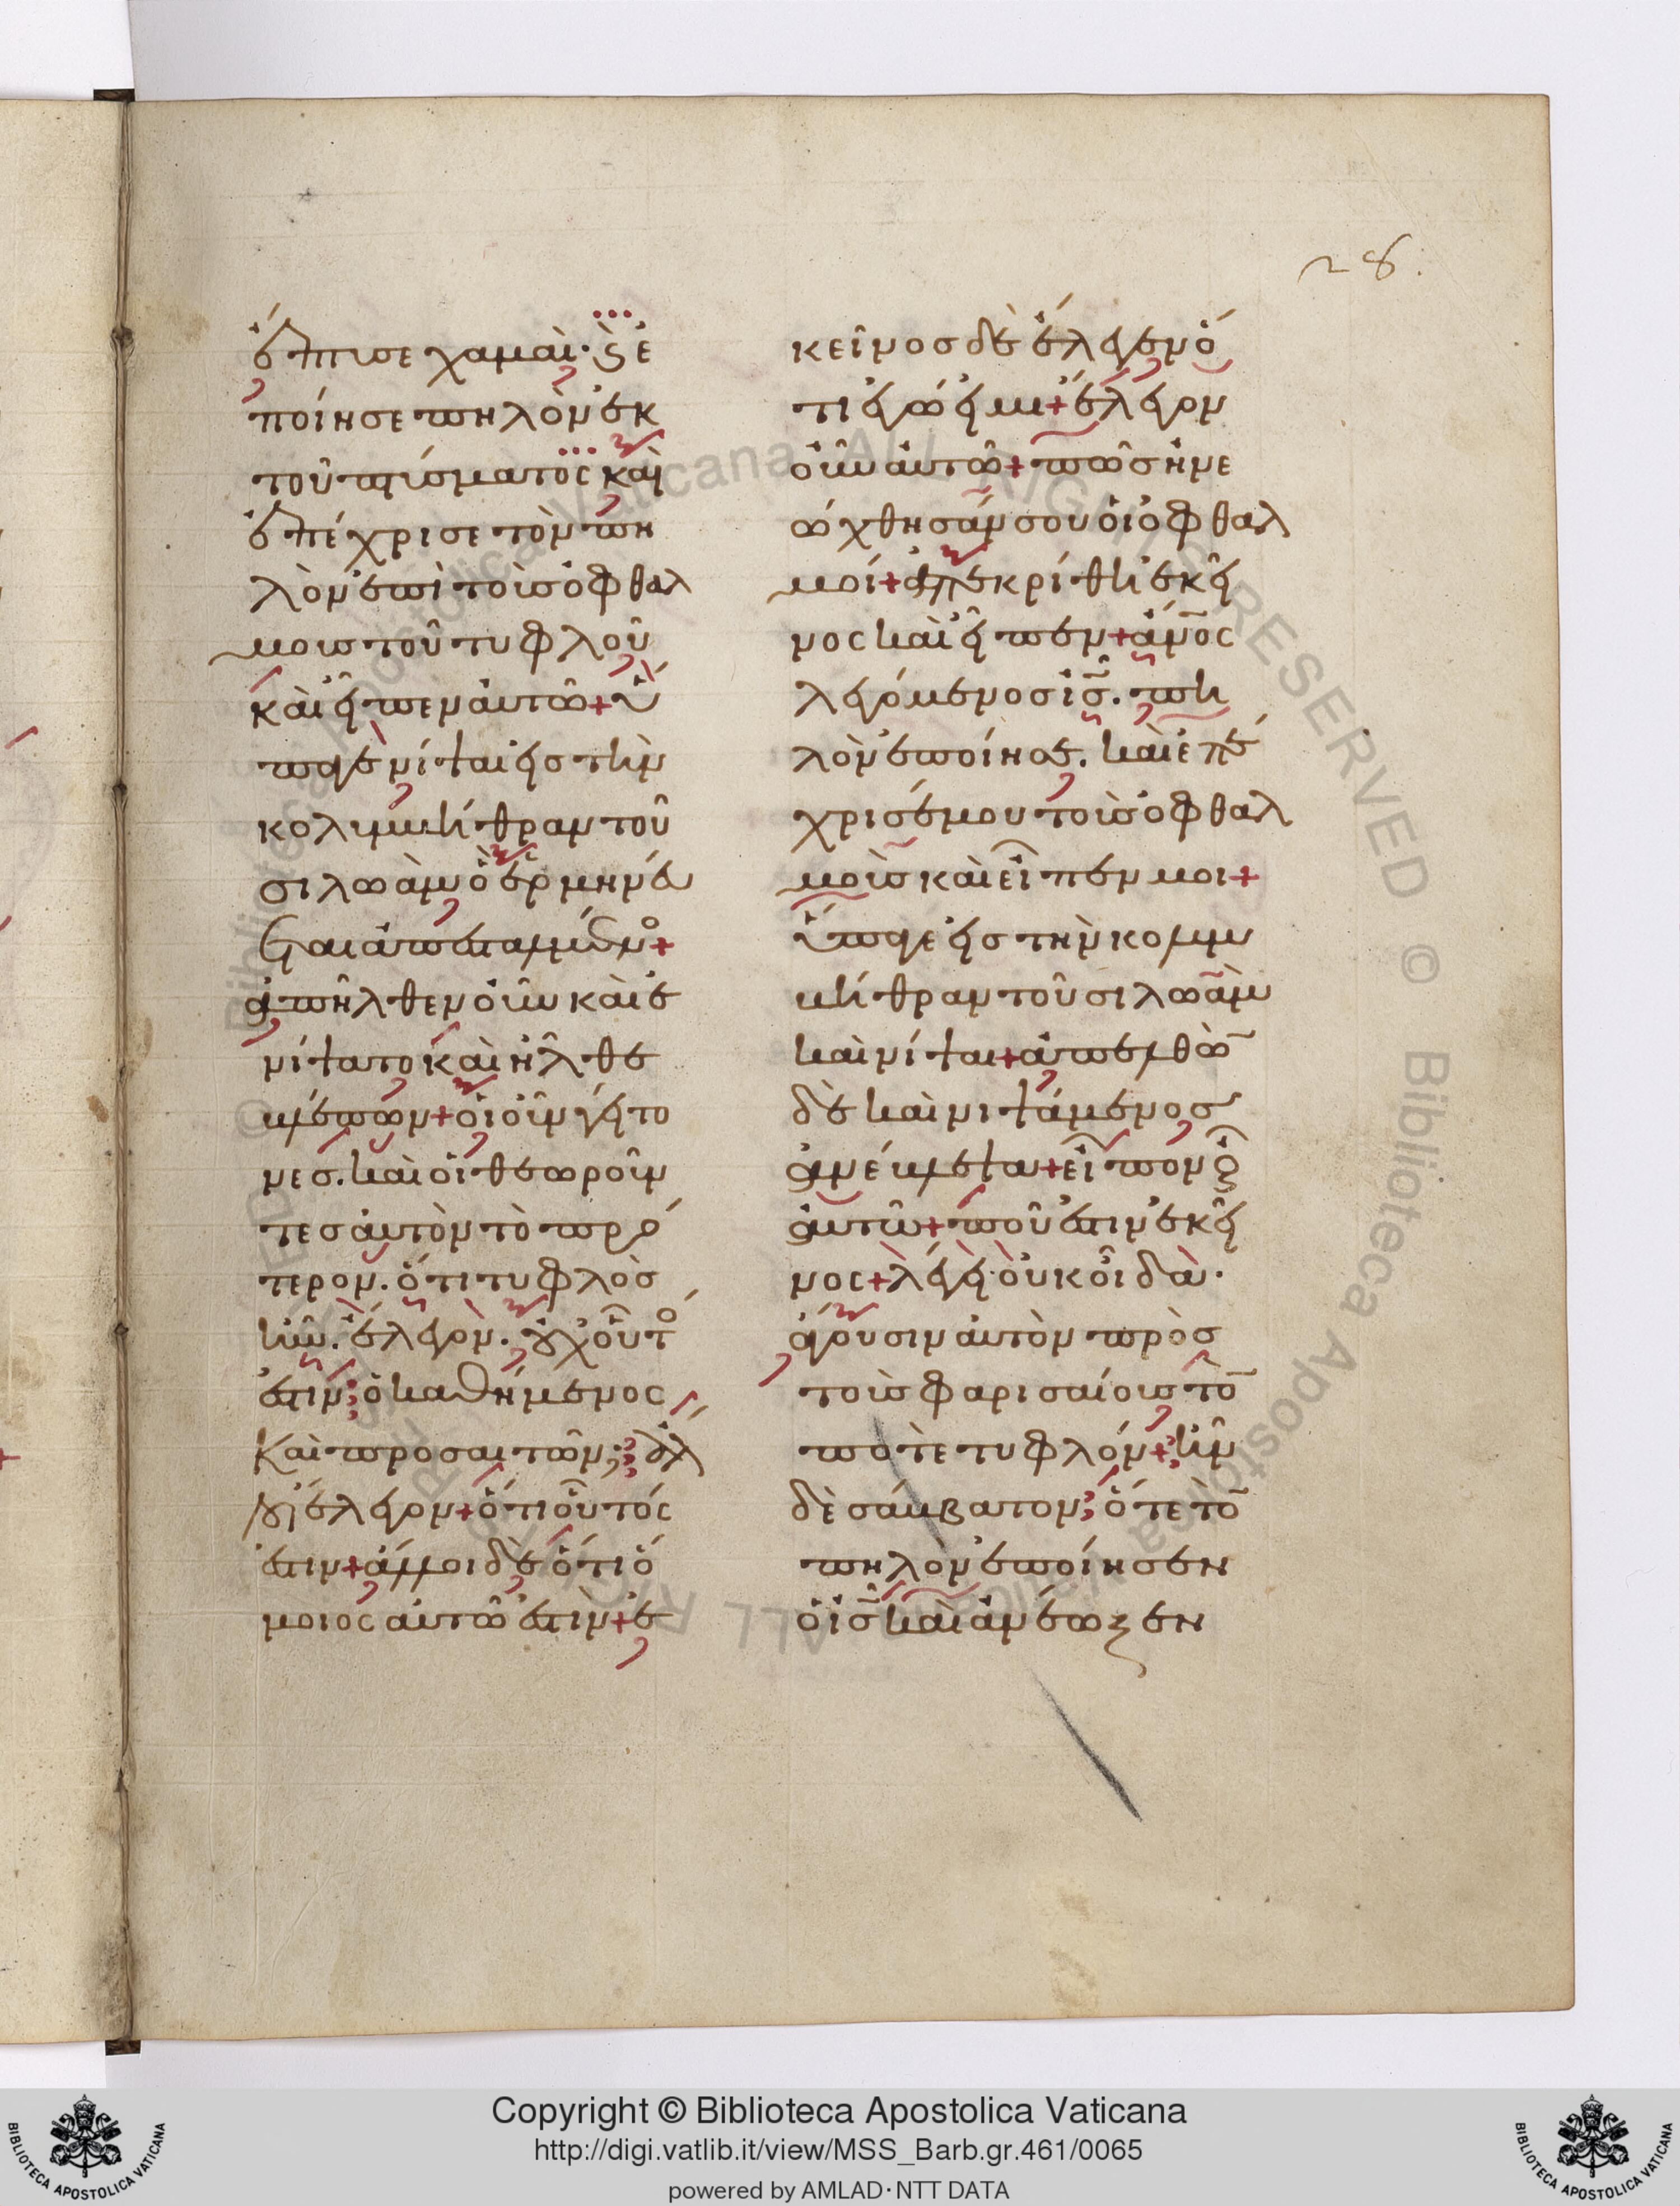 28.
ἔπτυσε χαμαὶ· (καὶ) ἐ
ποίησε πηλὸν ἐκ
τοῦ πτύσματος καὶ
ἐπέχρισε τὸν πη
λὸν ἐπὶ τοὺς ὀφθαλ
μους τοῦ τυφλοῦ
καὶ εἶπεν αὐτῶ + ὕ
παγε νίψαι εἰς τὴν
κολυμβήθραν τοῦ
σιλωὰμ ὃ ἑρμηνεύ
εται ἀπεσταλμένο +
ἀπῆλθεν οὖν καὶ ἐ
νίψατο καὶ ἦλθε
βλέπων + οἱ οὖν γείτο
νες. καὶ οἱ θεωροῦν
τες αὐτὸν τὸ πρό
τερον. ὅτι τυφλὸς
ἦν. ἔλεγον. οὐχ οὗτο
ἐστιν; ὁ καθήμενος
καὶ προσαιτῶν; ἄλ
λοι ἔλεγον + ὅτι οὗτός
ἐστιν + ἄλλοι δὲ ὅτι ὅ
μοιος αὐτῶ ἐστὶν + ἐ
κεῖνος δὲ ἔλεγεν ὅ
τι ἐγώ εἰμι + ἔλεγον
οὖν αὐτῶ + πῶς ἠνε
ώχθησάν σου οἱ ὀφθαλ
μοί + ἀπεκρίθη ἐκεῖ
νος καὶ εἶπεν + ἄν̅ος
λεγόμενος ι̅ς̅. πη
λὸν ἐποίησε. καὶ ἐπέ
χρισέ μου τοὺς ὀφθαλ
μοὺς καὶ εἶπέν μοι +
ὕπαγε εἰς τὴν κολυμ
βήθραν τοῦ σιλωὰμ
καὶ νίψαι + ἀπελθὼ̅
δὲ καὶ νιψάμενος
ἀνέβλεψα + εἶπον οὖ
αὐτῶ + ποῦ ἐστιν ἐκεῖ
νος + λέγει· οὐκ οἶδα·
ἄγουσιν αὐτὸν πρὸς
τοὺς φαρισαίους τὸ̅
ποτὲ τυφλόν + ἦν
δὲ σάββατον; ὅτε τὸ̅
πηλὸν ἐποίησεν
ὁ ι̅ς̅ καὶ ἀνέωξεν
Copyright © Biblioteca Apostolica Vaticana
http://digi.vatlib.it/view/MSS_Barb.gr.461/0065
powered by AMLAD·NTT DATA
BIBLIOTECA APOSTOLICA VATICANA
BIBLIOTECA APOSTOLICA VATICANA